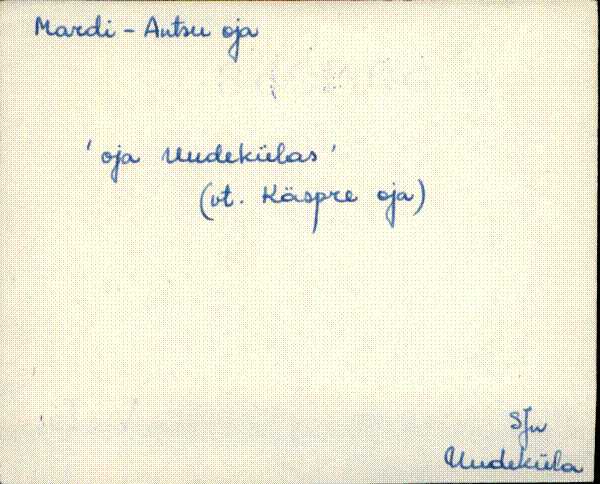 Mardi-Antsu oja
'oja Uudekülas'
(vt. Käspre oja)
SJn
Uudeküla